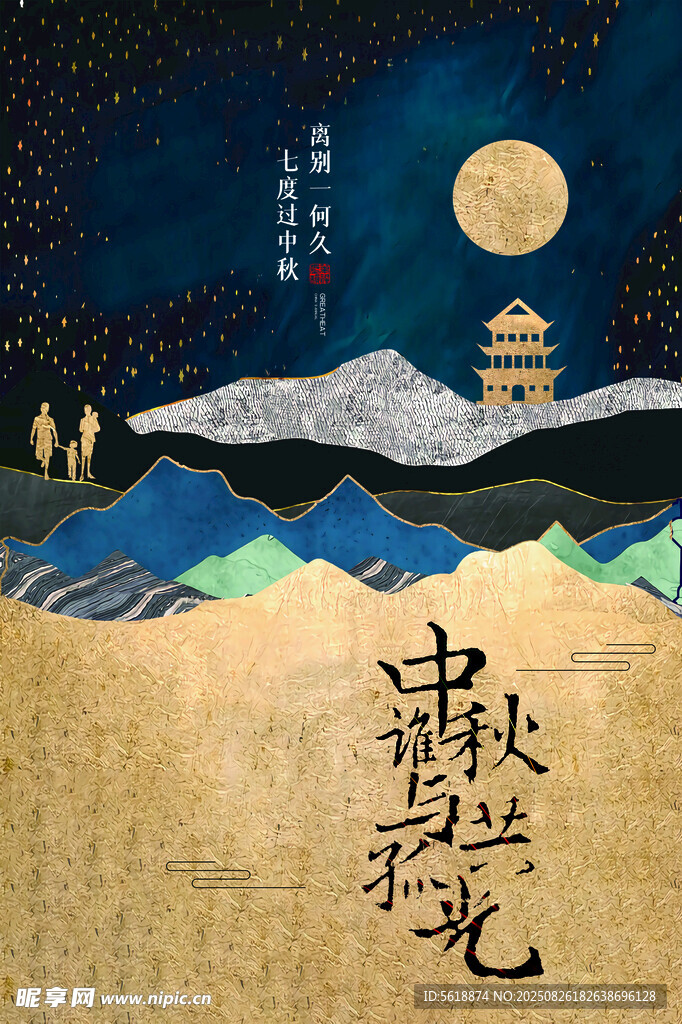 离别一何久
七度过中秋
GREATHEAT
中秋
谁与共
孤光
昵享网 www.nipic.cn
ID:5618874 NO:20250826182638696128